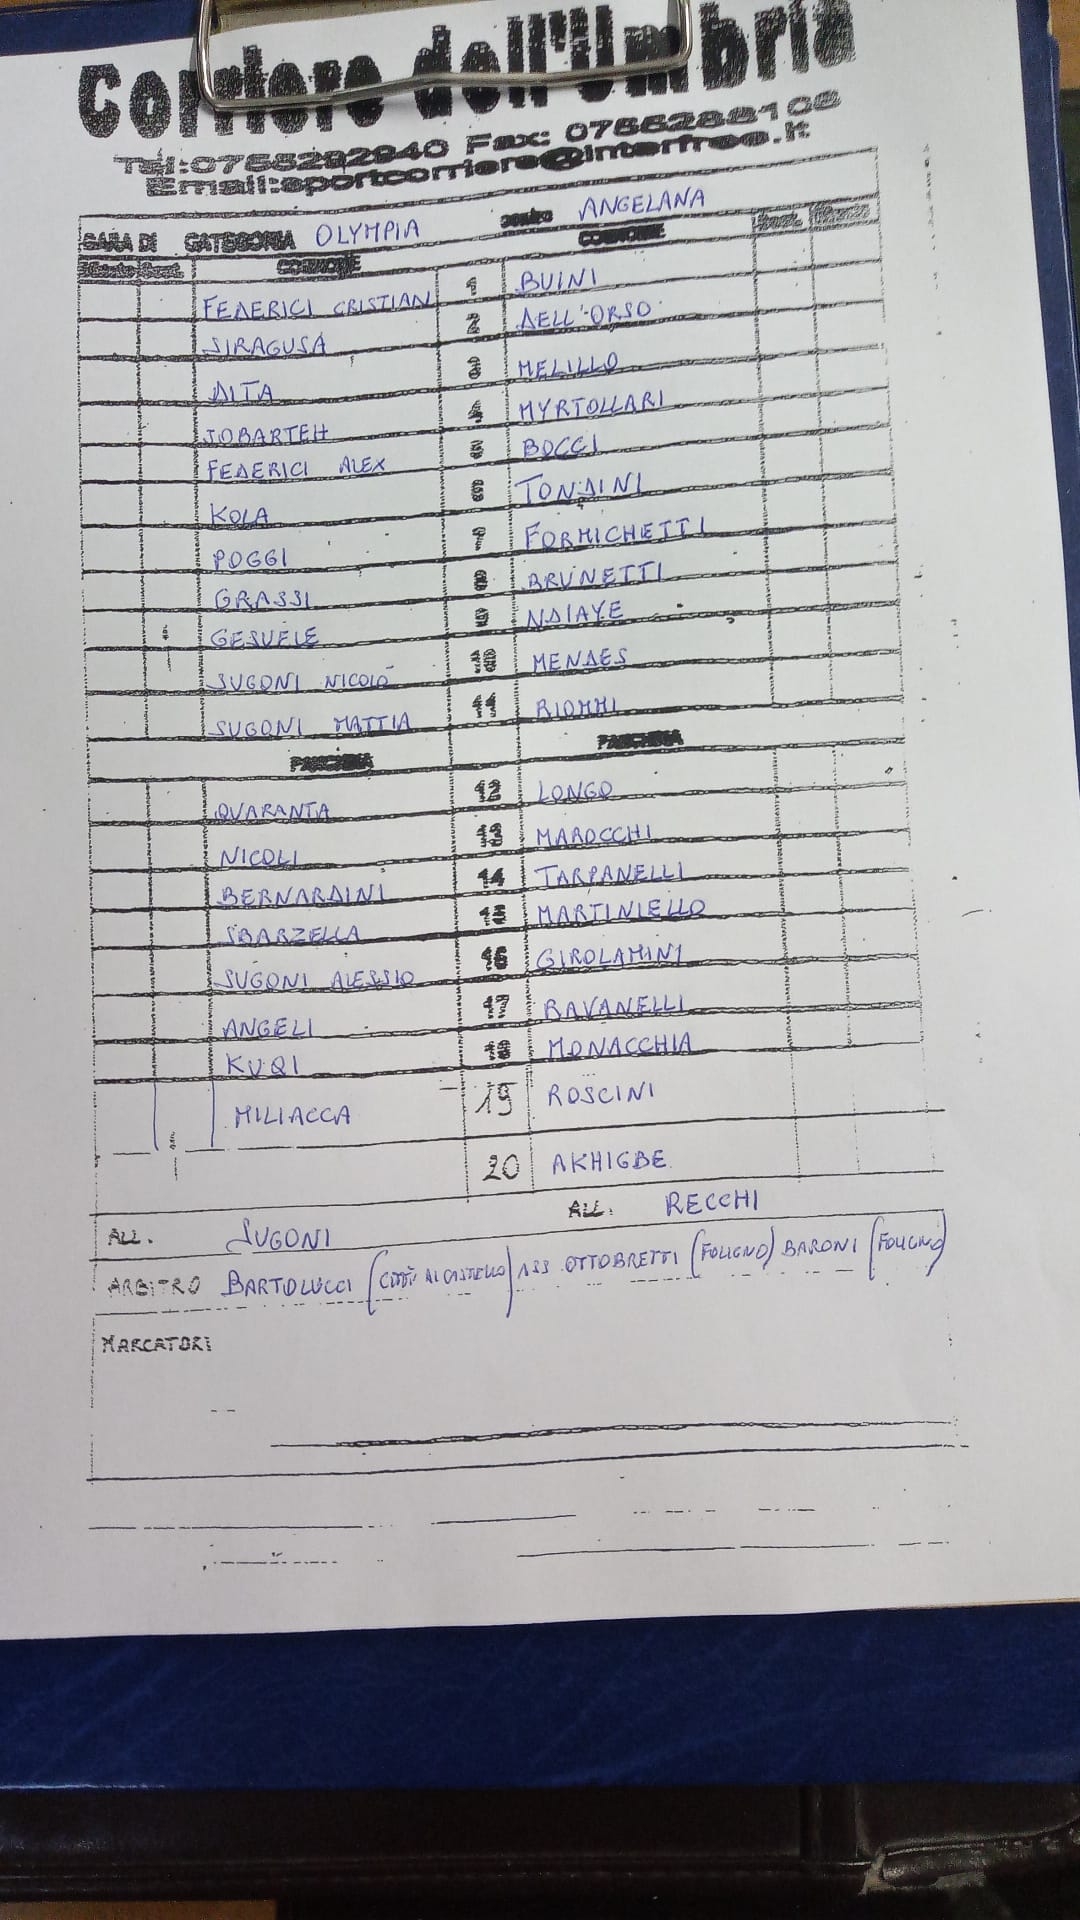 Corriere dell'Umbria
Tel:0755292940 Fax: 0755288108
Email:sportcorriere@interfree.it
GARA DI CATEGORIA OLYMPIA contro ANGELANA
COGNOME COGNOME
FEDERICI CRISTIAN 1 BUINI
SIRAGUSA 2 DELL'ORSO
DITA 3 MELILLO
JOBARTEH 4 MYRTOLLARI
FEDERICI ALEX 5 BOCCI
KOLA 6 TONDINI
POGGI 7 FORMICHETTI
GRASSI 8 BRUNETTI
GESUELE 9 NDIAYE
SUGONI NICOLÒ 10 MENDES
SUGONI MATTIA 11 RIOMMI
PANCHINA PANCHINA
QUARANTA 12 LONGO
NICOLI 13 MAROCCHI
BERNARDINI 14 TARPANELLI
SBARZELLA 15 MARTINIELLO
SUGONI ALESSIO 16 GIROLAMINI
ANGELI 17 RAVANELLI
KUQI 18 MONACCHIA
MILIACCA 19 ROSCINI
20 AKHIGBE
ALL. SUGONI ALL. RECCHI
ARBITRO BARTOLUCCI (CITTÀ DI CASTELLO) ASS OTTOBRETTI (FOLIGNO) BARONI (FOLIGNO)
MARCATORI